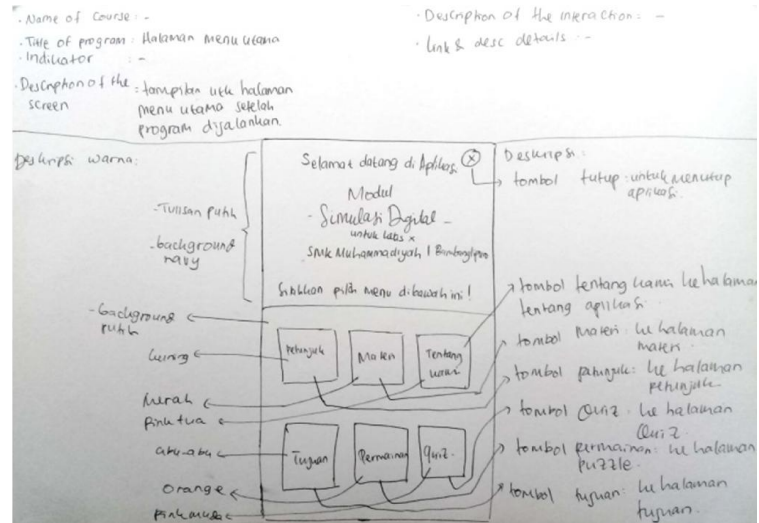 · Name of Course : -
· Title of program : Halaman menu utama
· Indikator : -
· Description of the screen : tampilan utk halaman
menu utama setelah
program dijalankan.
· Description of the interaction : -
· Link & desc details : -
Deskripsi warna :
- Tulisan putih
- background
navy
- background
putih
kuning
Merah
Pink tua
abu-abu
Orange
Pink muda
Selamat datang di Aplikasi
X
Modul
- Simulasi Digital -
untuk kelas X
SMK Muhammadiyah 1 Bambanglipuro
Silahkan pilih menu dibawah ini !
Petunjuk
Materi
Tentang
kami
Tujuan
Permainan
Quiz.
Deskripsi :
tombol tutup : untuk menutup
aplikasi.
tombol tentang kami ke halaman
tentang aplikasi.
tombol Materi : ke halaman
materi.
tombol petunjuk : ke halaman
petunjuk
tombol Quiz . ke halaman
Quiz.
tombol permainan : ke halaman
puzzle.
tombol tujuan : ke halaman
tujuan.